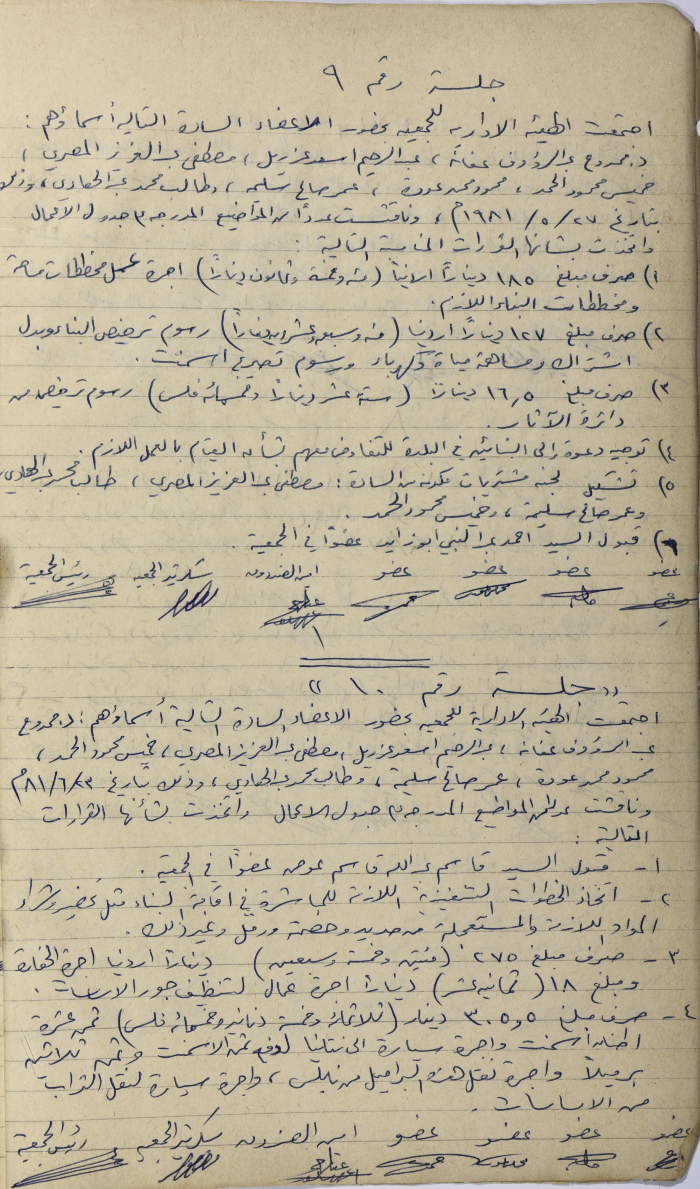 جلسة رقم ٩
اجتمعت الهيئة الادارية للجمعية بحضور الاعضاء السادة التالية أسماؤهم :
د. ممدوح عبد الرؤوف عنانة ، عبد الرحيم اسعد عزريل ، مصطفى عبد العزيز المصري ،
خميس محمود الحمد ، محمود محمد عودة ، عمر صالح سليمة ، وطالب محمد عبد الهادي ، وذلك
بتاريخ ٢٧ / ٥ / ١٩٨١م ، وناقشت عدداً من المواضيع المدرجة م جدول الأعمال
واتخذت بشأنها القرارات التالية :
١) صرف مبلغ ١٨٥ ديناراً اردنياً (مئة وخمسة وثمانون ديناراً) اجرة عمل مخططات مساحة
ومخططات البناء اللازم .
٢) صرف مبلغ ١٢٧ ديناراً اردنيا (مئة وسبعة وعشرين ديناراً) رسوم ترخيص البناء وبدل
اشتراك ومساهمة مياة وكهرباء ورسوم تصريح اسمنت .
٣) صرف مبلغ ١٦,٥ ديناراً (ستة عشر ديناراً وخمسمائة فلس) رسوم ترخيص من
دائرة الآثار .
٤) توجيه دعوة الى البنائين في البلدة للتفاوض معهم بشأن القيام بالعمل اللازم .
٥) تشكيل لجنة مشتريات مكونة من السادة : مصطفى عبد العزيز المصري ، طالب محمد عبد الهادي
وعمر صالح سليمة ، وخميس محمود الحمد .
٦) قبول السيد احمد عبد النبي ابو زايد عضوًا في الجمعية .
عضو عضو عضو عضو امين الصندوق سكرتير الجمعية رئيس الجمعية
"جلسة رقم ١٠"
اجتمعت الهيئة الادارية للجمعية بحضور الاعضاء السادة التالية أسماؤهم : د. ممدوح
عبد الرؤوف عنانة ، عبد الرحيم اسعد عزريل ، مصطفى عبد العزيز المصري ، خميس محمود الحمد ،
محمود محمد عودة ، عمر صالح سليمة ، وطالب محمد عبد الهادي ، وذلك بتاريخ ٣/٦/٨١م
وناقشت عدداً من المواضيع المدرجة م جدول الاعمال واتخذت بشأنها القرارات
التالية :
١- قبول السيد قاسم عبد الله قاسم عوض عضوًا في الجمعية .
٢- اتخاذ الخطوات التنفيذية اللازمة للمباشرة في اقامة البناء مثل تحضير وشراء
المواد اللازمة والمستعملة من حديد وحصمة ورمل وغير ذلك .
٣- صرف مبلغ ٢٧٥ (مئتين وخمسة وسبعين) ديناراً اردنيا اجرة الحفارة
ومبلغ ١٨ (ثمانية عشر) ديناراً اجرة عمال لتنظيف جور الاساسات .
٤- صرف مبلغ ٣٠٥,٥ دينار (ثلاثمائة وخمسة دنانير وخمسمائة فلس) ثمن عشرة
اطنان أسمنت واجرة سيارة الى نتانيا لدفع ثمن الاسمنت وثمن ثلاثين
برميلاً واجرة نقل هذه البراميل من نابلس ، واجرة سيارة لنقل التراب
من الاساسات .
عضو عضو عضو عضو امين الصندوق سكرتير الجمعية رئيس الجمعية